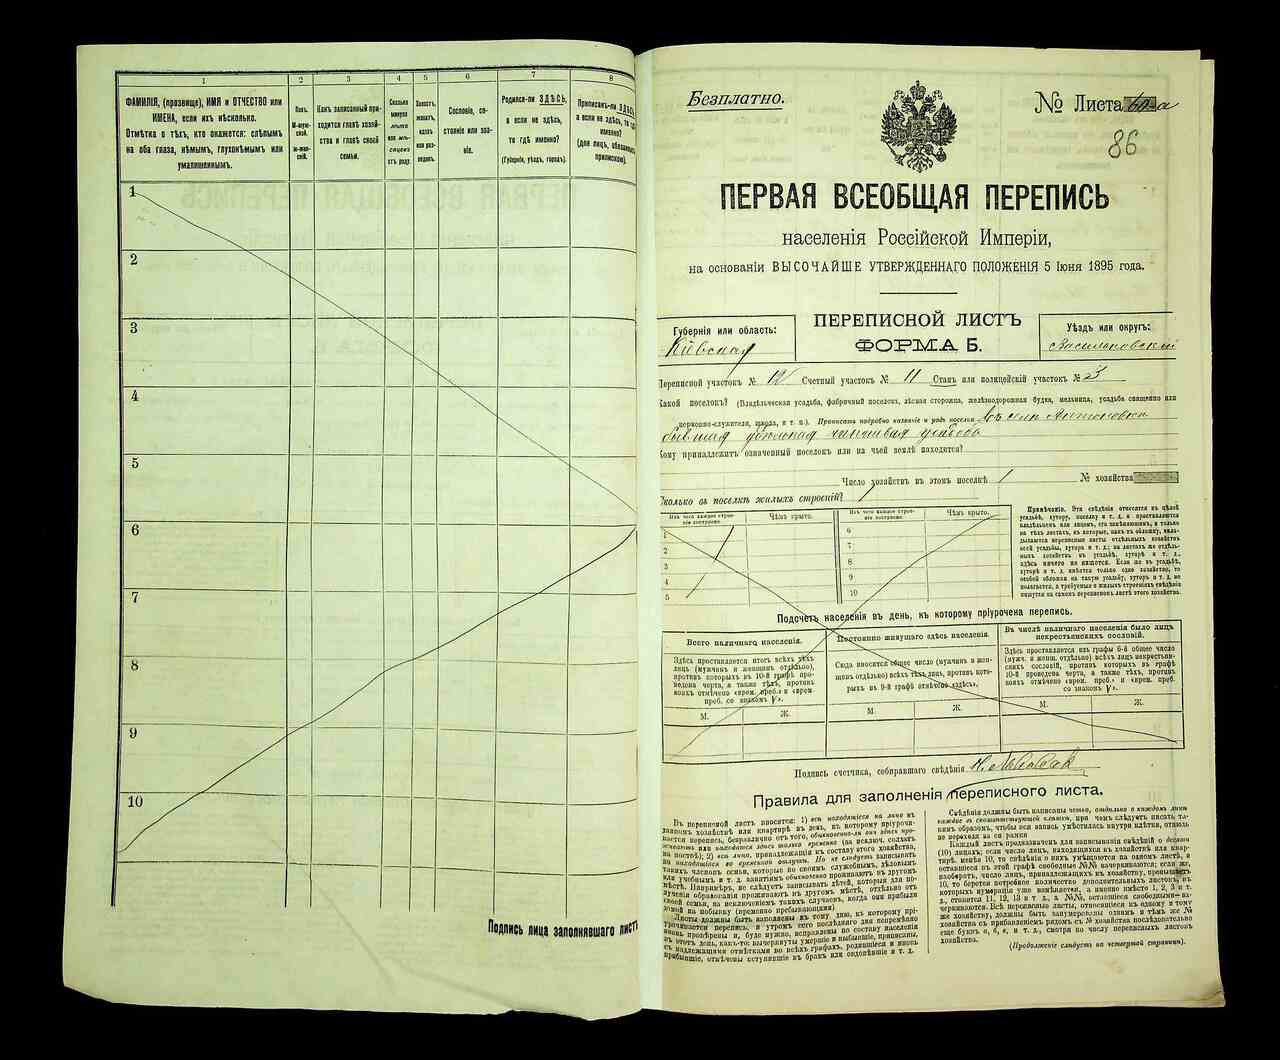 1
2
3
4
5
6
7
8
ФАМИЛІЯ, (прозвище), ИМЯ и ОТЧЕСТВО или
ИМЕНА, если ихъ нѣсколько.
Отмѣтка о тѣхъ, кто окажется: слѣпымъ
на оба глаза, нѣмымъ, глухонѣмымъ или
умалишеннымъ.
Полъ.
М-муж-
ской.
Ж-жен-
скій.
Какъ записанный при-
ходится главѣ хозяй-
ства и главѣ своей
семьи.
Сколько
минуло
лѣтъ
или мѣ-
сяцевъ
отъ роду.
Холостъ,
женатъ,
вдовъ
или раз-
веденъ.
Сословіе, со-
стояніе или зва-
ніе.
Родился-ли ЗДѢСЬ,
а если не здѣсь,
то гдѣ именно?
(Губернія, уѣздъ, городъ).
Приписанъ-ли ЗДѢСЬ,
а если не здѣсь, то гдѣ
именно?
(для лицъ, обязанныхъ
припиской).
1
2
3
4
5
6
7
8
9
10
Подпись лица заполнявшаго листъ
Безплатно.
№ Листа 60-а
86
ПЕРВАЯ ВСЕОБЩАЯ ПЕРЕПИСЬ
населенія Россійской Имперіи,
на основаніи ВЫСОЧАЙШЕ УТВЕРЖДЕННАГО ПОЛОЖЕНІЯ 5 Іюня 1895 года.
Губернія или область:
Кіевская
ПЕРЕПИСНОЙ ЛИСТЪ
ФОРМА Б.
Уѣздъ или округъ:
Васильковскій
Переписной участокъ № 12 Счетный участокъ № 11 Станъ или полицейскій участокъ № 3
Какой поселокъ? (Владѣльческая усадьба, фабричный поселокъ, лѣсная сторожка, желѣзнодорожная будка, мельница, усадьба священно или
церковно-служителя, школа, и т. п.). Прописать подробно названіе и родъ поселка Въ селѣ Антоновка
бывшая усадьба
Кому принадлежитъ означенный поселокъ или на чьей землѣ находится?
Число хозяйствъ въ этомъ поселкѣ 1 № хозяйства
Сколько въ поселкѣ жилыхъ строеній? 1
Изъ чего каждое строе-
ніе построено.
Чѣмъ крыто.
Изъ чего каждое строе-
ніе построено.
Чѣмъ крыто.
1
2
3
4
5
6
7
8
9
10
Примѣчаніе. Эти свѣдѣнія относятся къ цѣлой
усадьбѣ, хутору, поселку и т. д. и проставляются
владѣльцемъ или лицомъ, его замѣняющимъ, и только
на тѣхъ листахъ, въ которые, какъ въ обложку, вкла-
дываются переписные листы отдѣльныхъ хозяйствъ
всей усадьбы, хутора и т. д.; на листахъ же отдѣль-
ныхъ хозяйствъ въ усадьбѣ, хуторѣ и т. д.,
здѣсь ничего не пишется. Если же въ усадьбѣ,
хуторѣ и т. д. имѣется только одно хозяйство, то
особой обложки на такую усадьбу, хуторъ и т. д. не
полагается, а требуемыя о жилыхъ строеніяхъ свѣдѣнія
пишутся на самомъ переписномъ листѣ этого хозяйства.
Подсчетъ населенія въ день, къ которому пріурочена перепись.
Всего наличнаго населенія.
Здѣсь проставляется итогъ всѣхъ тѣхъ
лицъ (мужчинъ и женщинъ отдѣльно),
противъ которыхъ въ 10-й графѣ про-
ведена черта, а также тѣхъ, противъ
коихъ отмѣчено «врем. преб.» и «врем.
преб. со знакомъ V».
М.
Ж.
Постоянно живущаго здѣсь населенія.
Сюда вносится общее число (мужчинъ и жен-
щинъ отдѣльно) всѣхъ тѣхъ лицъ, противъ кото-
рыхъ въ 9-й графѣ отмѣчено «здѣсь».
М.
Ж.
Въ числѣ наличнаго населенія было лицъ
некрестьянскихъ сословій.
Здѣсь проставляется изъ графы 6-й общее число
(мужч. и женщ. отдѣльно) всѣхъ лицъ некрестьян-
скихъ сословій, противъ которыхъ въ графѣ
10-й проведена черта, а также тѣхъ, против
коихъ отмѣчено «врем. преб.» и «врем. преб.
со знакомъ V».
М.
Ж.
Подпись счетчика, собиравшаго свѣдѣнія
Правила для заполненія переписного листа.
Въ переписной листъ вносятся: 1) всѣ находящіеся на лицо въ
данномъ хозяйствѣ или квартирѣ въ день, къ которому пріурочи-
вается перепись, безразлично отъ того, обыкновенно-ли они здѣсь про-
живаютъ или находятся здѣсь только временно (за исключ. солдатъ
на постоѣ); 2) всѣ лица, принадлежащія къ составу этого хозяйства,
но находящіяся во временной отлучкѣ. Но не слѣдуетъ записывать
такихъ членовъ семьи, которые по своимъ служебнымъ, дѣловымъ
или учебнымъ и т. д. занятіямъ обыкновенно проживаютъ въ другомъ
мѣстѣ. Напримѣръ, не слѣдуетъ записывать дѣтей, которыя для по-
лученія образованія проживаютъ въ другомъ мѣстѣ, отдѣльно отъ
своей семьи, за исключеніемъ такихъ случаевъ, когда они прибыли
домой на побывку (временно пребывающіе).
Листы должны быть заполнены къ тому дню, къ которому прі-
урочивается перепись, и утромъ сего послѣдняго дня непремѣнно
вновь провѣрены и, буде нужно, исправлены по составу населенія
въ этотъ день, какъ-то: вычеркнуты умершіе и выбывшіе, приписаны,
съ надлежащими отмѣтками во всѣхъ графахъ, родившіеся и вновь
прибывшіе, отмѣчены вступившіе въ бракъ или овдовѣвшіе и т. д.
Свѣдѣнія должны быть написаны четко, отдѣльно о каждомъ лицѣ
каждое въ соотвѣтствующей клѣткѣ, при чемъ слѣдуетъ писать та-
кимъ образомъ, чтобы вся запись умѣстилась внутри клѣтки, отнюдь
не переходя за ея рамки
Каждый листъ предназначенъ для записыванія свѣдѣній о десяти
(10) лицахъ; если число лицъ, находящихся въ хозяйствѣ или квар-
тирѣ, менѣе 10, то свѣдѣнія о нихъ умѣщаются на одномъ листѣ, и
оставшіеся въ этой графѣ свободные №№ зачеркиваются; если же,
наоборотъ, число лицъ, принадлежащихъ къ хозяйству, превышаетъ
10, то берется потребное количество дополнительныхъ листовъ, въ
которыхъ нумерація уже измѣняется, а именно вмѣсто 1, 2, 3 и т.
д., ставится 11, 12, 13 и т. д., а №№, оставшіеся свободными—за-
черкиваются. Всѣ переписные листы, относящіеся къ одному и тому
же хозяйству, должны быть занумерованы однимъ и тѣмъ же №
хозяйства съ прибавленіемъ рядомъ съ № хозяйства послѣдовательно
еще буквъ а, б, в, и т. д., смотря по числу переписныхъ листовъ
хозяйства.
(Продолженіе слѣдуетъ на четвертой страницѣ).